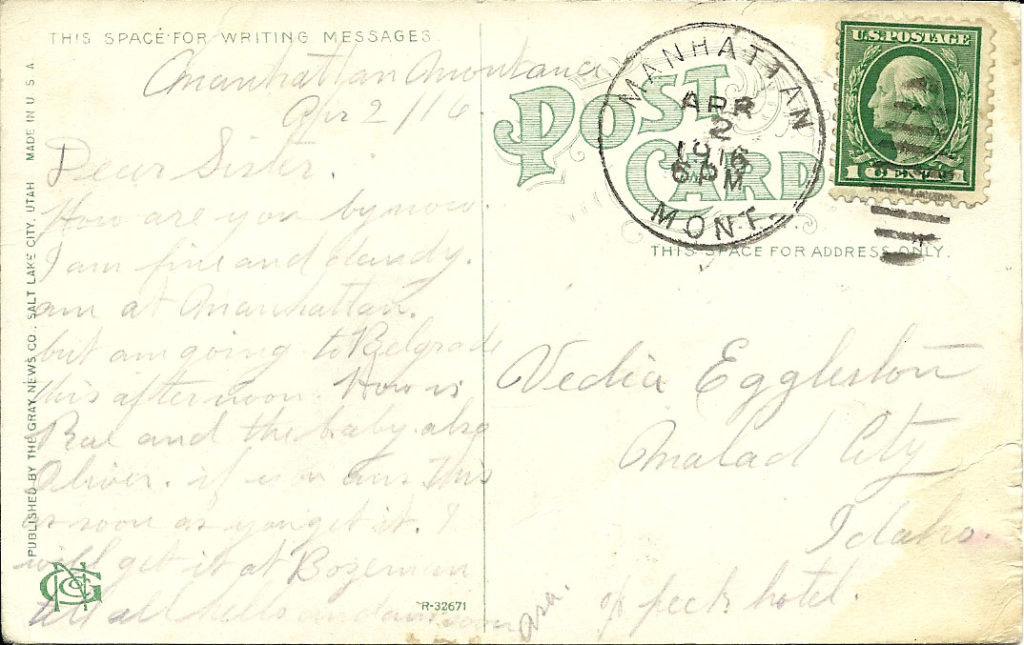 THIS SPACE FOR WRITING MESSAGES
Manhattan Montana
Apr 2/16
Dear Sister.
How are you by now.
I am fine and dandy.
am at Manhattan.
but am going to Belgrade
this afternoon. How is
Rae and the baby also
Oliver. if you ans this
as soon as you get it. I
will get it at Bozeman
tell all hello and ans soon
Asa.
PUBLISHED BY THE GRAY NEWS CO., SALT LAKE CITY, UTAH MADE IN U.S.A
R-32671
POST CARD
MANHATTAN
APR
2
1916
6 PM
MONT.
U.S. POSTAGE
1 CENT 1
THIS SPACE FOR ADDRESS ONLY.
Vedia Eggleston
Malad City
Idaho.
℅ peck hotel.